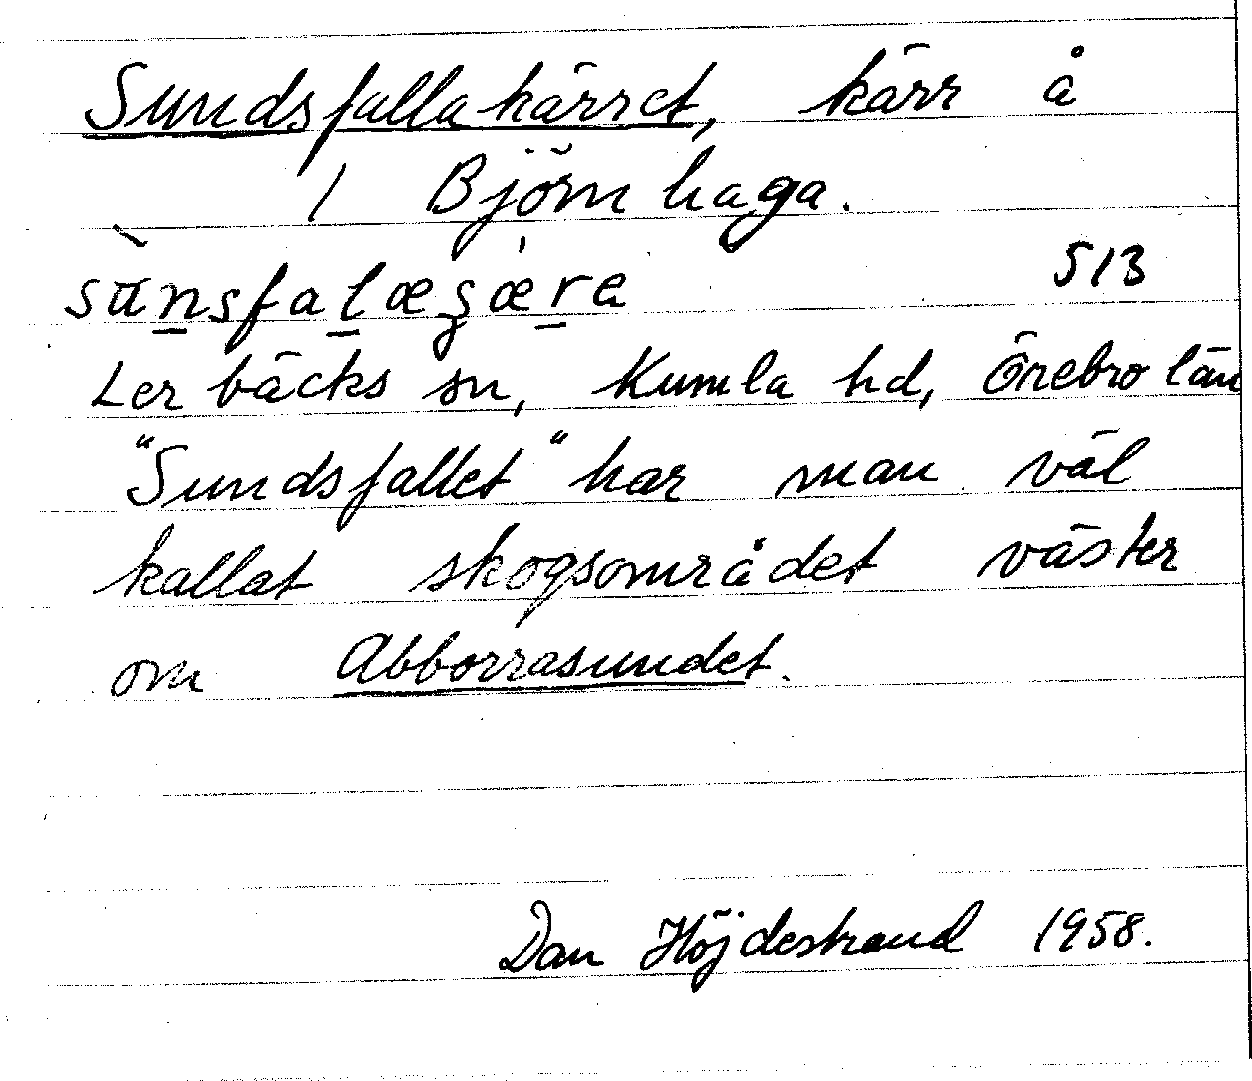 Sundsfallakärret, kärr å
1 Björnhaga.
513
Lerbäcks sn, Kumla hd, Örebro län
"Sundsfallet" har man väl
kallat skogsområdet väster
om Abborrasundet.
Dan Höjdestrand 1958.